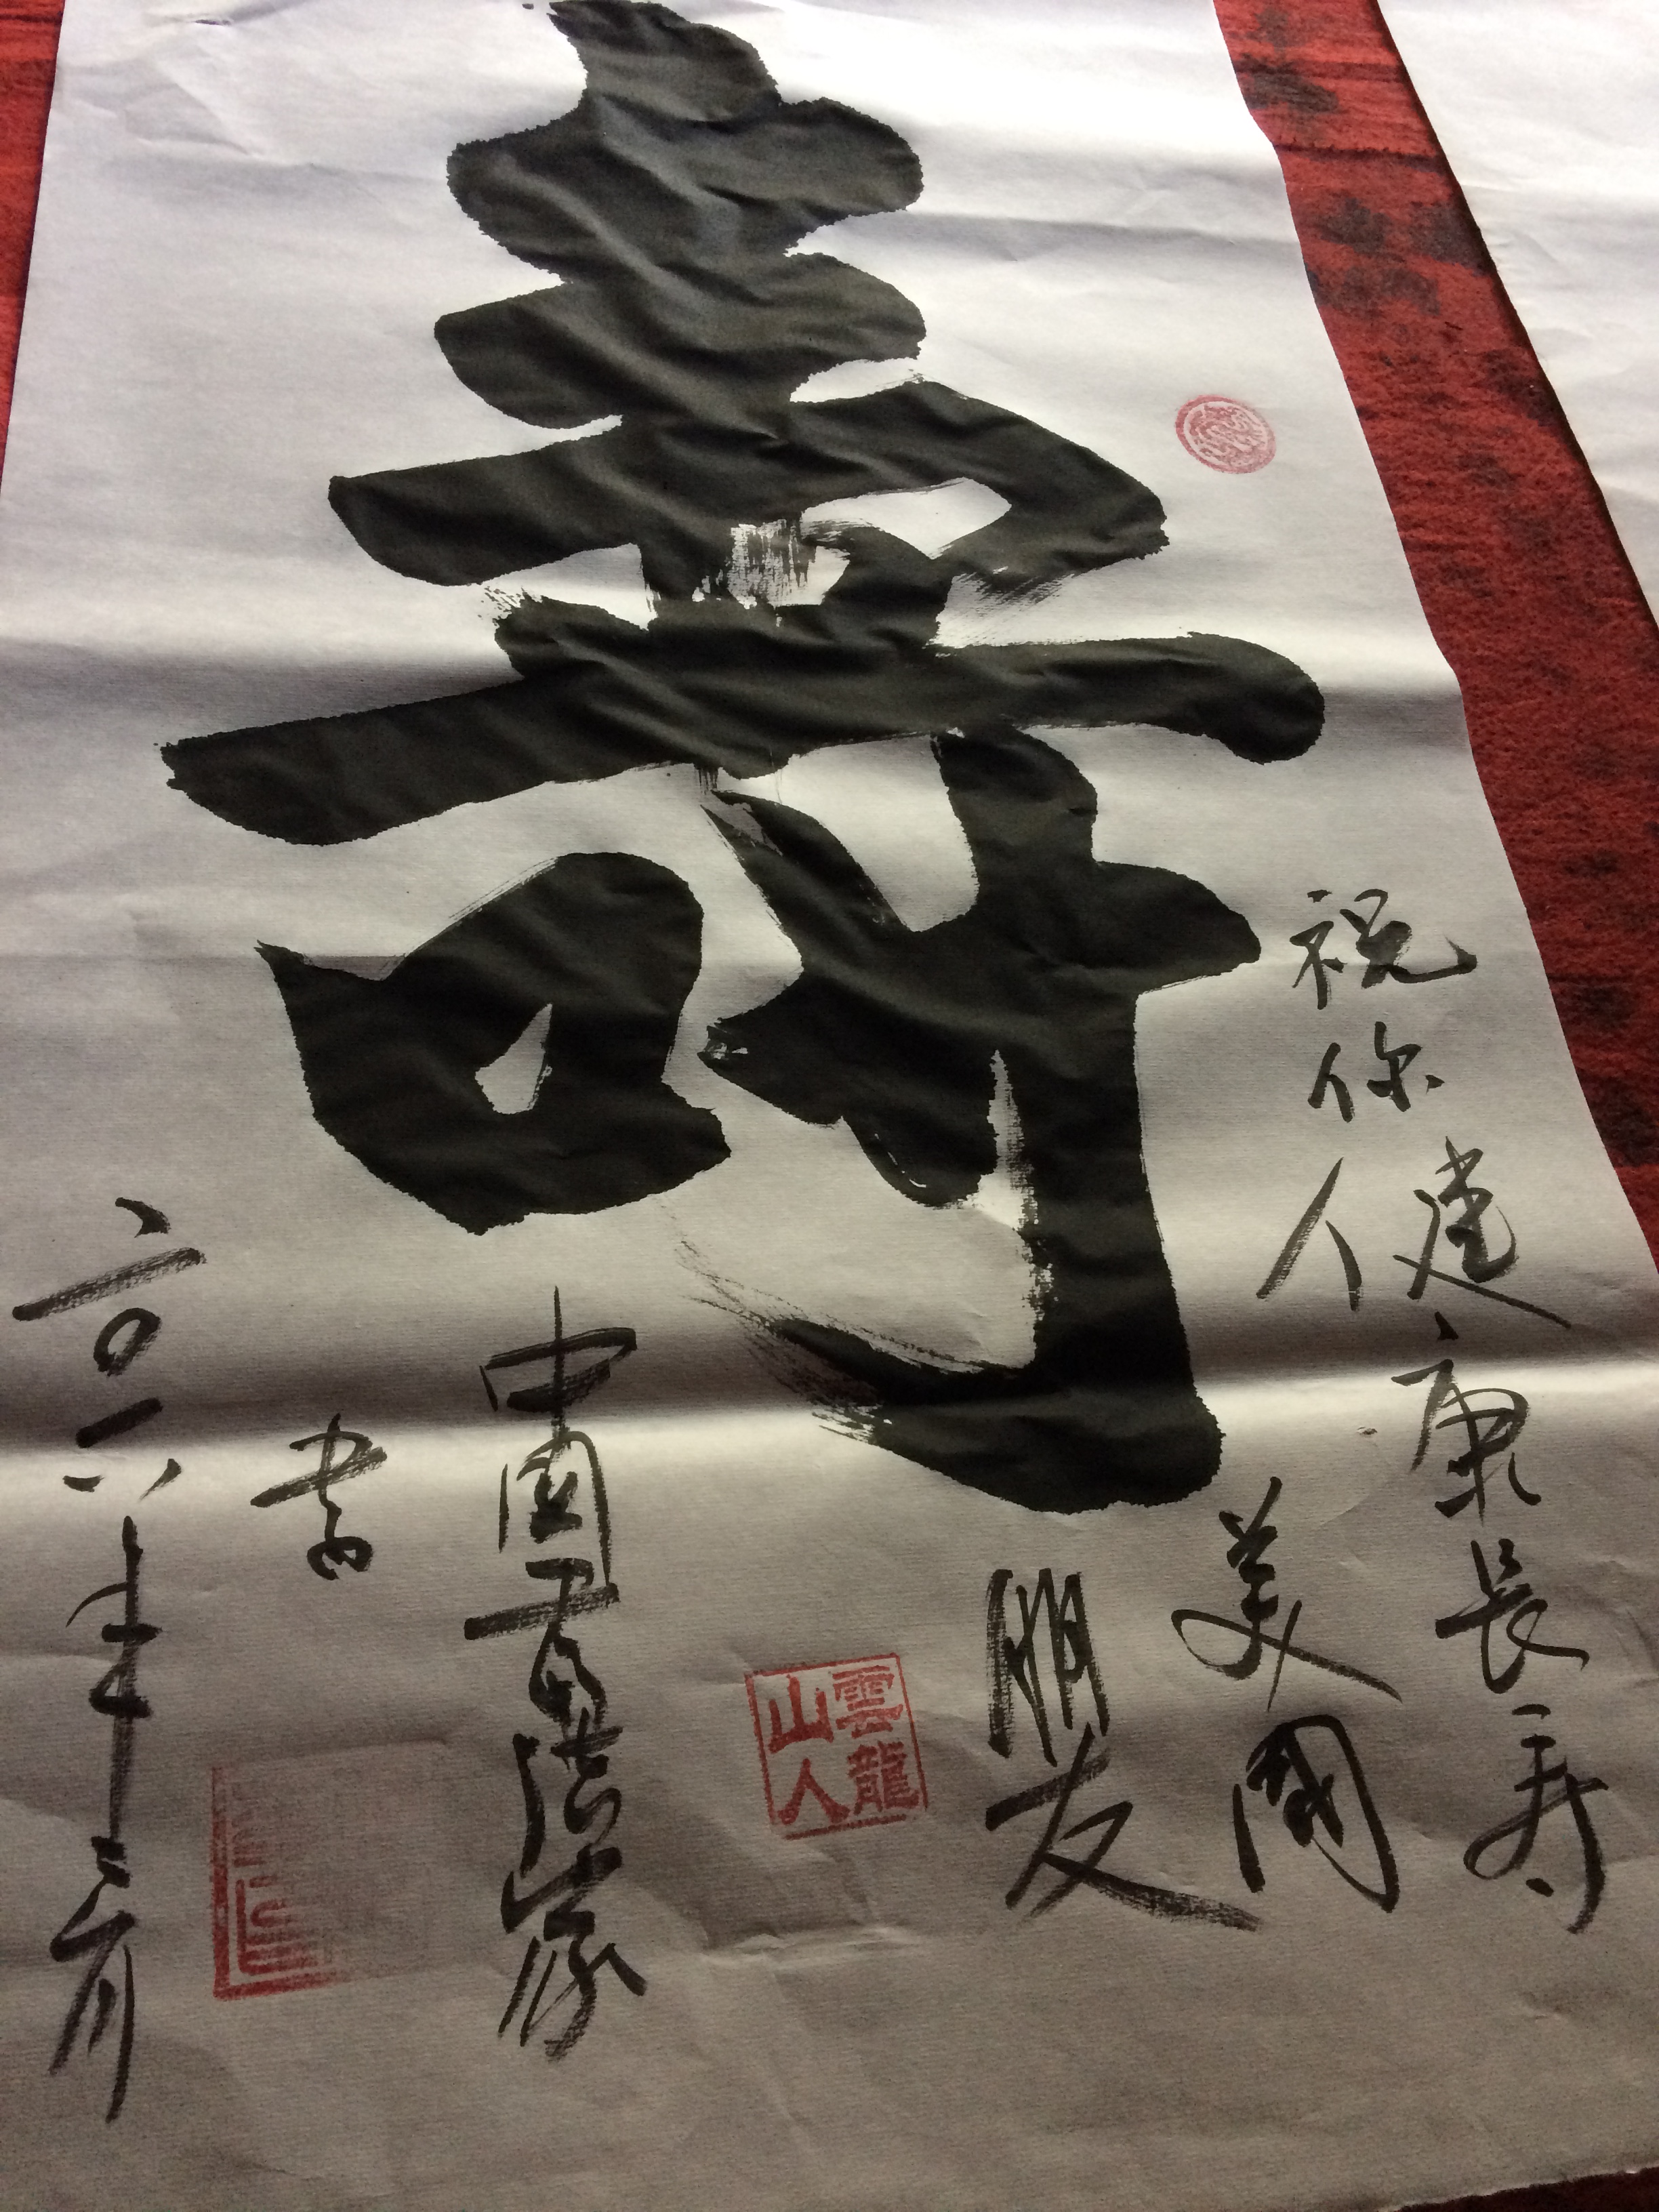 壽
祝你健康長壽
美國
朋友
雲龍
山人
中國
書
二〇一八年三月